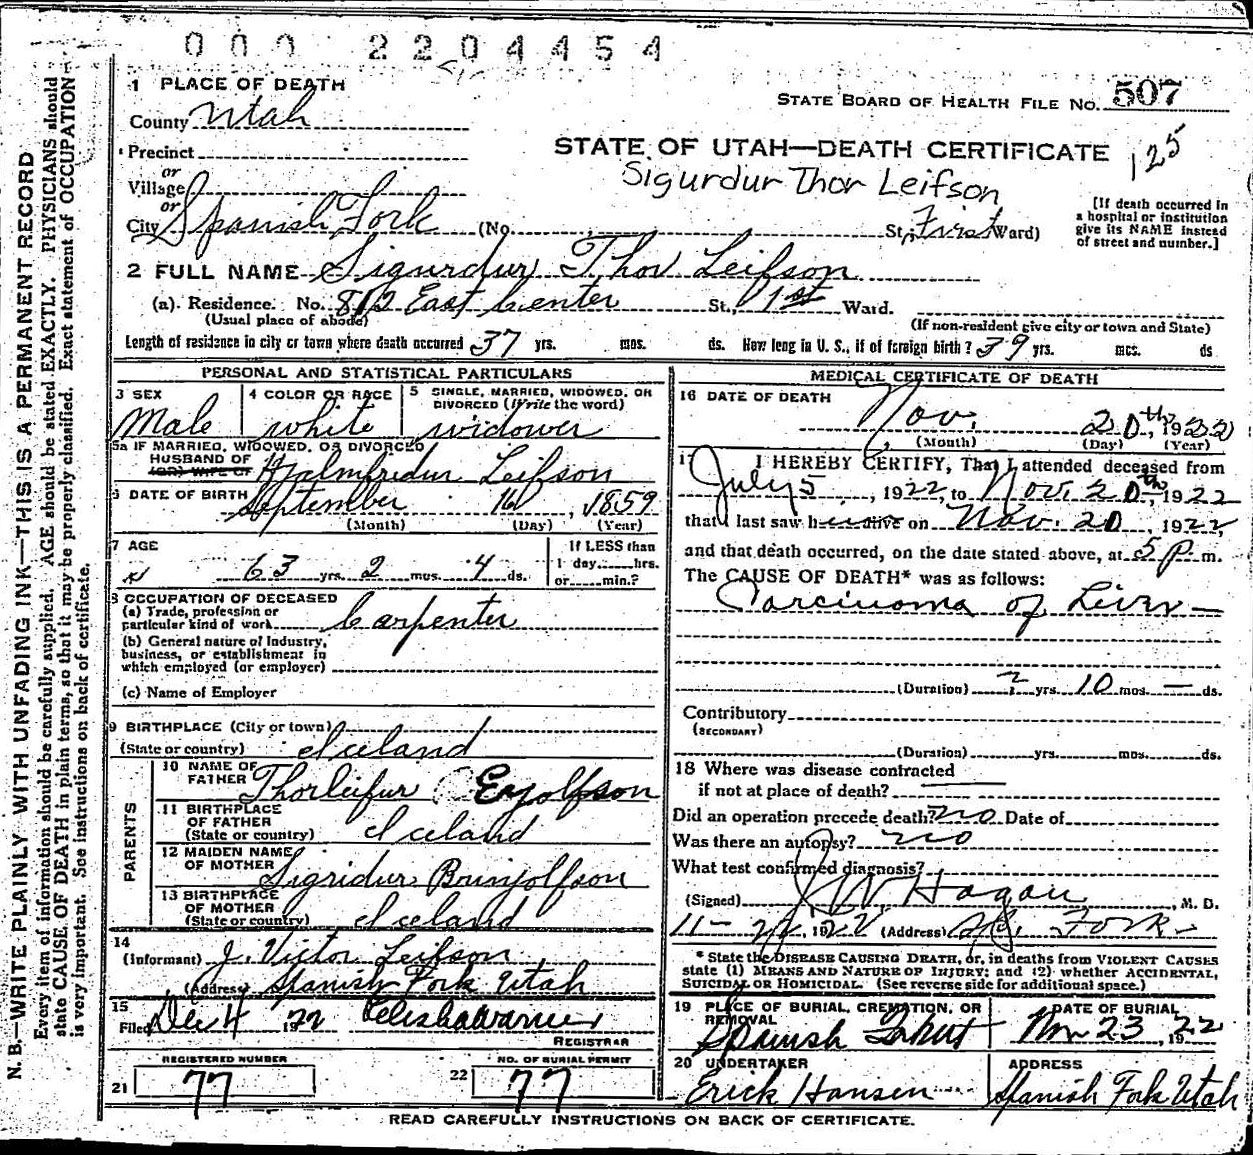 0 0 0 2 2 0 4 4 5 4
1 PLACE OF DEATH
STATE BOARD OF HEALTH FILE NO. 507
County Utah
Precinct
or
Village
or
City Spanish Fork (No. St., First Ward)
STATE OF UTAH—DEATH CERTIFICATE
125
Sigurdur Thor Leifson
[If death occurred in
a hospital or institution
give its NAME instead
of street and number.]
2 FULL NAME Sigurdur Thor Leifson
(a). Residence. No. 812 East Center St., 1st Ward.
(Usual place of abode) (If non-resident give city or town and State)
Length of residence in city or town where death occurred 37 yrs. mos. ds. How long in U. S., if of foreign birth? 39 yrs. mcs. ds
PERSONAL AND STATISTICAL PARTICULARS
3 SEX
Male
4 COLOR OR RACE
white
5 SINGLE, MARRIED, WIDOWED, OR
DIVORCED (Write the word)
widower
5a IF MARRIED, WIDOWED, OR DIVORCED
HUSBAND OF
(OR) WIFE OF Hjalmfredur Leifson
6 DATE OF BIRTH September 16, 1859
(Month) (Day) (Year)
7 AGE
63 yrs. 2 mos. 4 ds.
If LESS than
1 day hrs.
or min.?
8 OCCUPATION OF DECEASED
(a) Trade, profession or
particular kind of work Carpenter
(b) General nature of Industry,
business, or establishment in
which employed (or employer)
(c) Name of Employer
9 BIRTHPLACE (City or town)
(State or country) Iceland
PARENTS
10 NAME OF
FATHER Thorleifur Eyolfson
11 BIRTHPLACE
OF FATHER
(State or country) Iceland
12 MAIDEN NAME
OF MOTHER Sigridur Brinjolfson
13 BIRTHPLACE
OF MOTHER
(State or country) Iceland
14
(Informant) J. Victor Leifson
(Address) Spanish Fork Utah
15
Filed Dec 4 1922
REGISTRAR
REGISTERED NUMBER
21 77
NO. OF BURIAL PERMIT
22 77
MEDICAL CERTIFICATE OF DEATH
16 DATE OF DEATH
Nov. 20th, 1922
(Month) (Day) (Year)
17 I HEREBY CERTIFY, That I attended deceased from
July 5, 1922, to Nov. 20th 1922
that I last saw h alive on Nov. 20, 1922
and that death occurred, on the date stated above, at 5 P. m.
The CAUSE OF DEATH* was as follows:
Carcinoma of Liver —
(Duration) ? yrs. 10 mos. — ds.
Contributory
(SECONDARY)
(Duration) yrs. mos. ds.
18 Where was disease contracted
if not at place of death?
Did an operation precede death? no Date of
Was there an autopsy? no
What test confirmed diagnosis?
(Signed) J W Hagan, M. D.
11- 22, 1922 (Address) Sp. Fork -
* State the DISEASE CAUSING DEATH, or, in deaths from VIOLENT CAUSES
state (1) MEANS AND NATURE OF INJURY; and (2) whether ACCIDENTAL,
SUICIDAL OR HOMICIDAL. (See reverse side for additional space.)
19 PLACE OF BURIAL, CREMATION, OR
REMOVAL
Spanish Fork Ut
DATE OF BURIAL
Nov 23, 1922
20 UNDERTAKER
Erick Hansen
ADDRESS
Spanish Fork Utah
READ CAREFULLY INSTRUCTIONS ON BACK OF CERTIFICATE.
N. B.—WRITE PLAINLY WITH UNFADING INK—THIS IS A PERMANENT RECORD
Every item of information should be carefully supplied. AGE should be stated EXACTLY. PHYSICIANS should
state CAUSE OF DEATH in plain terms, so that it may be properly classified. Exact statement of OCCUPATION
is very important. See instructions on back of certificate.